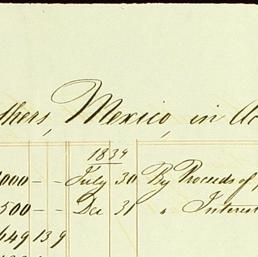 thers, Mexico, in Ac
1839
000 -- July 30 By Proceeds of
500 -- Dec 31 " Interest
649 13 9